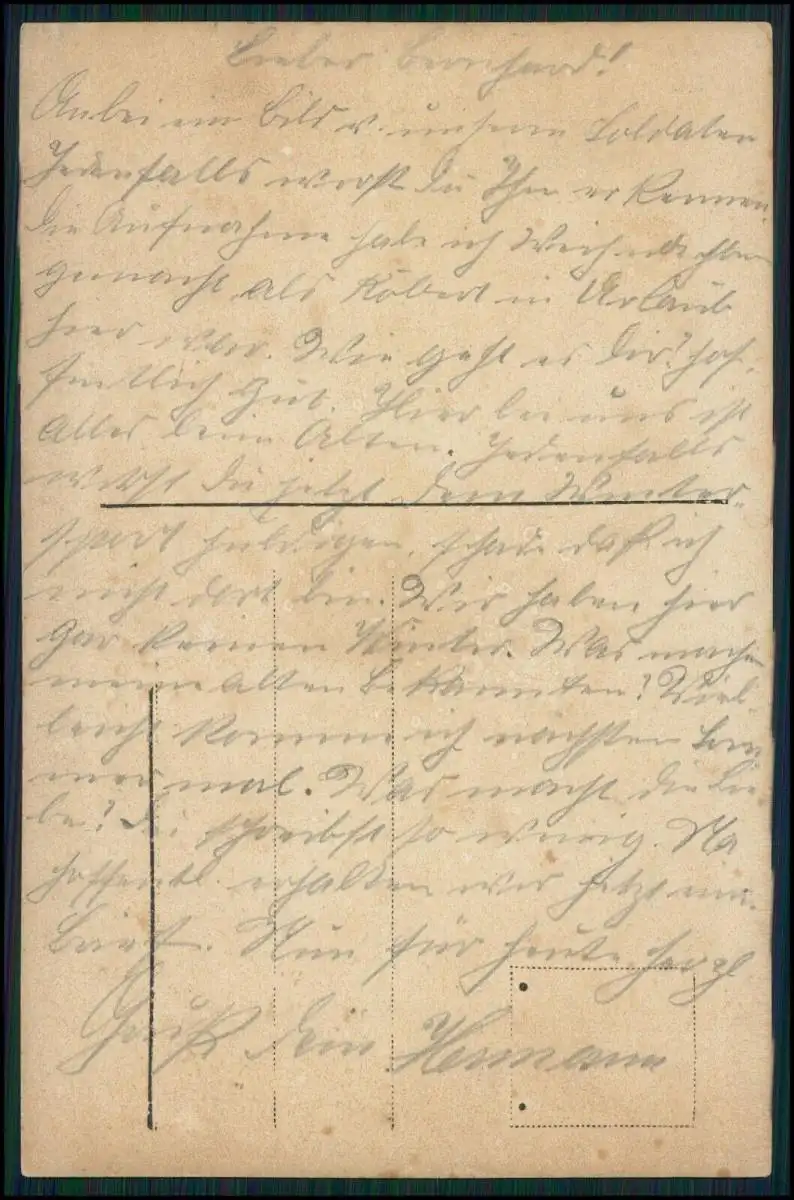 Lieber Bernhard!
Anbei ein Bild v. unserem Soldaten
Jedenfalls wirst du Ihn erkennen.
Die Aufnahme habe ich Weihnachten
gemacht als Robert in Urlaub
hier war. Wie geht es Dir? hof-
fentlich gut. Hier bei uns ist
Alles beim Alten. Jedenfalls
wirst du jetzt dem Winter-
sport huldigen, schade daß ich
nicht dort bin. Wir haben hier
gar keinen Winter. Was machen
meine alten Bekannten? Viel-
leicht komme ich nächsten Som
mer mal. Was macht die Lie
be? Du schreibst so wenig. Na
hoffentl. erhalten wir jetzt ein.
Brief. Nun für heute herzl
Gruß Dein Hermann